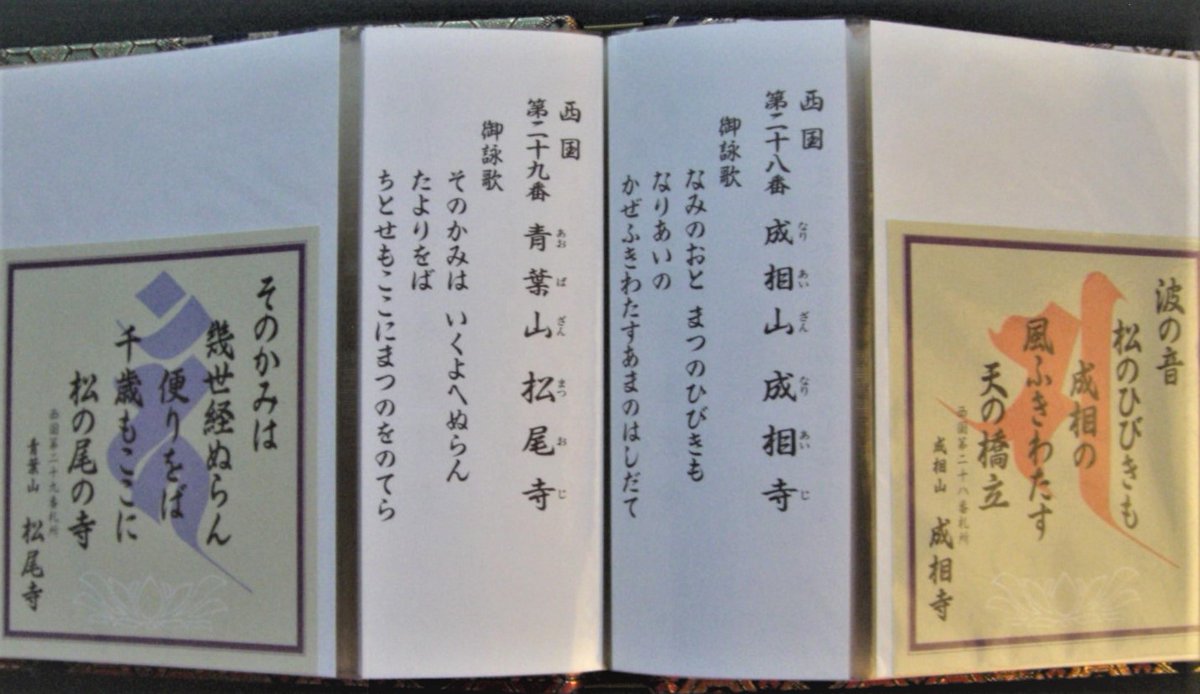 波の音
松のひびきも
成相の
風ふきわたす
天の橋立
西国第二十八番札所
成相山 成相寺
西国
第二十八番 成相山成相寺
なりあいざんなりあいじ
御詠歌
なみのおと まつのひびきも
なりあいの
かぜふきわたすあまのはしだて
西国
第二十九番 青葉山松尾寺
あおばざんまつおじ
御詠歌
そのかみは いくよへぬらん
たよりをば
ちとせもここにまつのをのてら
そのかみは
幾世経ぬらん
便りをば
千歳もここに
松の尾の寺
西国第二十九番札所
青葉山 松尾寺